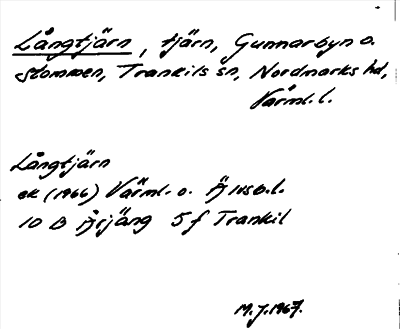 Långtjärn, tjärn, Gunnarbyn o.
Stommen, Trankils sn, Nordmarks hd,
Värml. l.
Långtjärn
ek (1966) Värml. o. Älvsb. l.
10 B Årjäng 5 f Trankil
M. J. 1967.